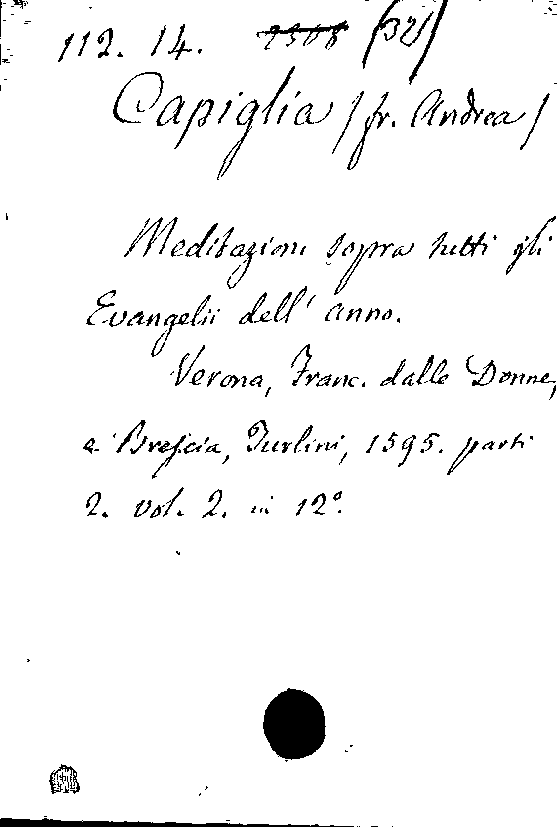 112. 14. (32)
Capiglia / fr. Andrea /
Meditazioni sopra tutti gli
Evangelii dell' anno.
Verona, Franc. dalle Donne,
e Brescia, Turlini, 1595. parti
2. vol. 2. in 12º.